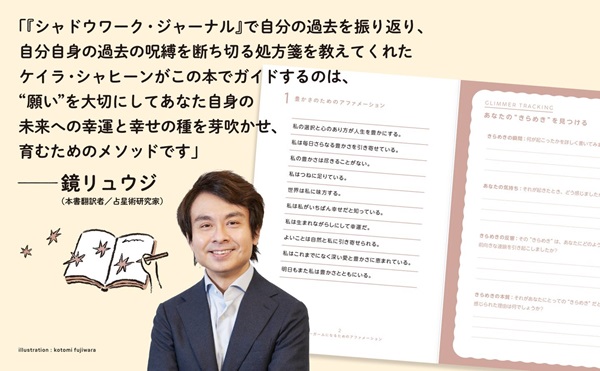 「『シャドウワーク・ジャーナル』で自分の過去を振り返り、
自分自身の過去の呪縛を断ち切る処方箋を教えてくれた
ケイラ・シャヒーンがこの本でガイドするのは、
“願い”を大切にしてあなた自身の
未来への幸運と幸せの種を芽吹かせ、
育むためのメソッドです」
――鏡リュウジ
（本書翻訳者／占星術研究家）
illustration : kotomi fujiwara
1 豊かさのためのアファメーション
私の選択と心のあり方が人生を豊かにする。
私は毎日さらなる豊かさを引き寄せている。
私の豊かさは尽きることがない。
私はつねに足りている。
世界は私に味方する。
私は私がいちばん幸せだと知っている。
私は生まれながらにして幸運だ。
よいことは自然と私に引き寄せられる。
私はこれまでになく深い愛と豊かさに恵まれている。
明日もまた私は豊かさとともにいる。
2
ためのアファメーション
GLIMMER TRACKING
あなたの“きらめき”を見つける
きらめきの瞬間：何が起こったかを詳しく書いてみ
あなたの気持ち：それが起きたとき、どう感じました
きらめきの反響：その“きらめき”は、あなたにどのよう
きらめきの本質：それがあなたにとっての“きらめき”だと
感じられた理由は何でしょうか？